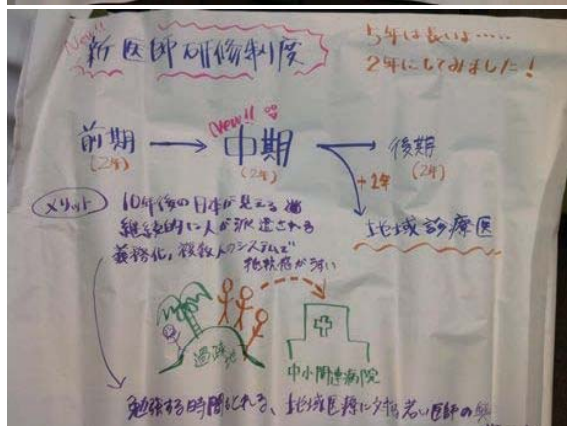 New!!
新医師研修制度
5年は長いよ……
2年にしてみました!
前期 → 中期 → 後期
New!!
(2年) (2年) (2年)
+2年
地域診療医
メリット 10年後の日本が見える
継続的に人が派遣される
義務化、複数人のシステムで
抵抗感がうすい
過疎地
中小関連病院
勉強する時間もとれる、地域医療に対する若い医師の